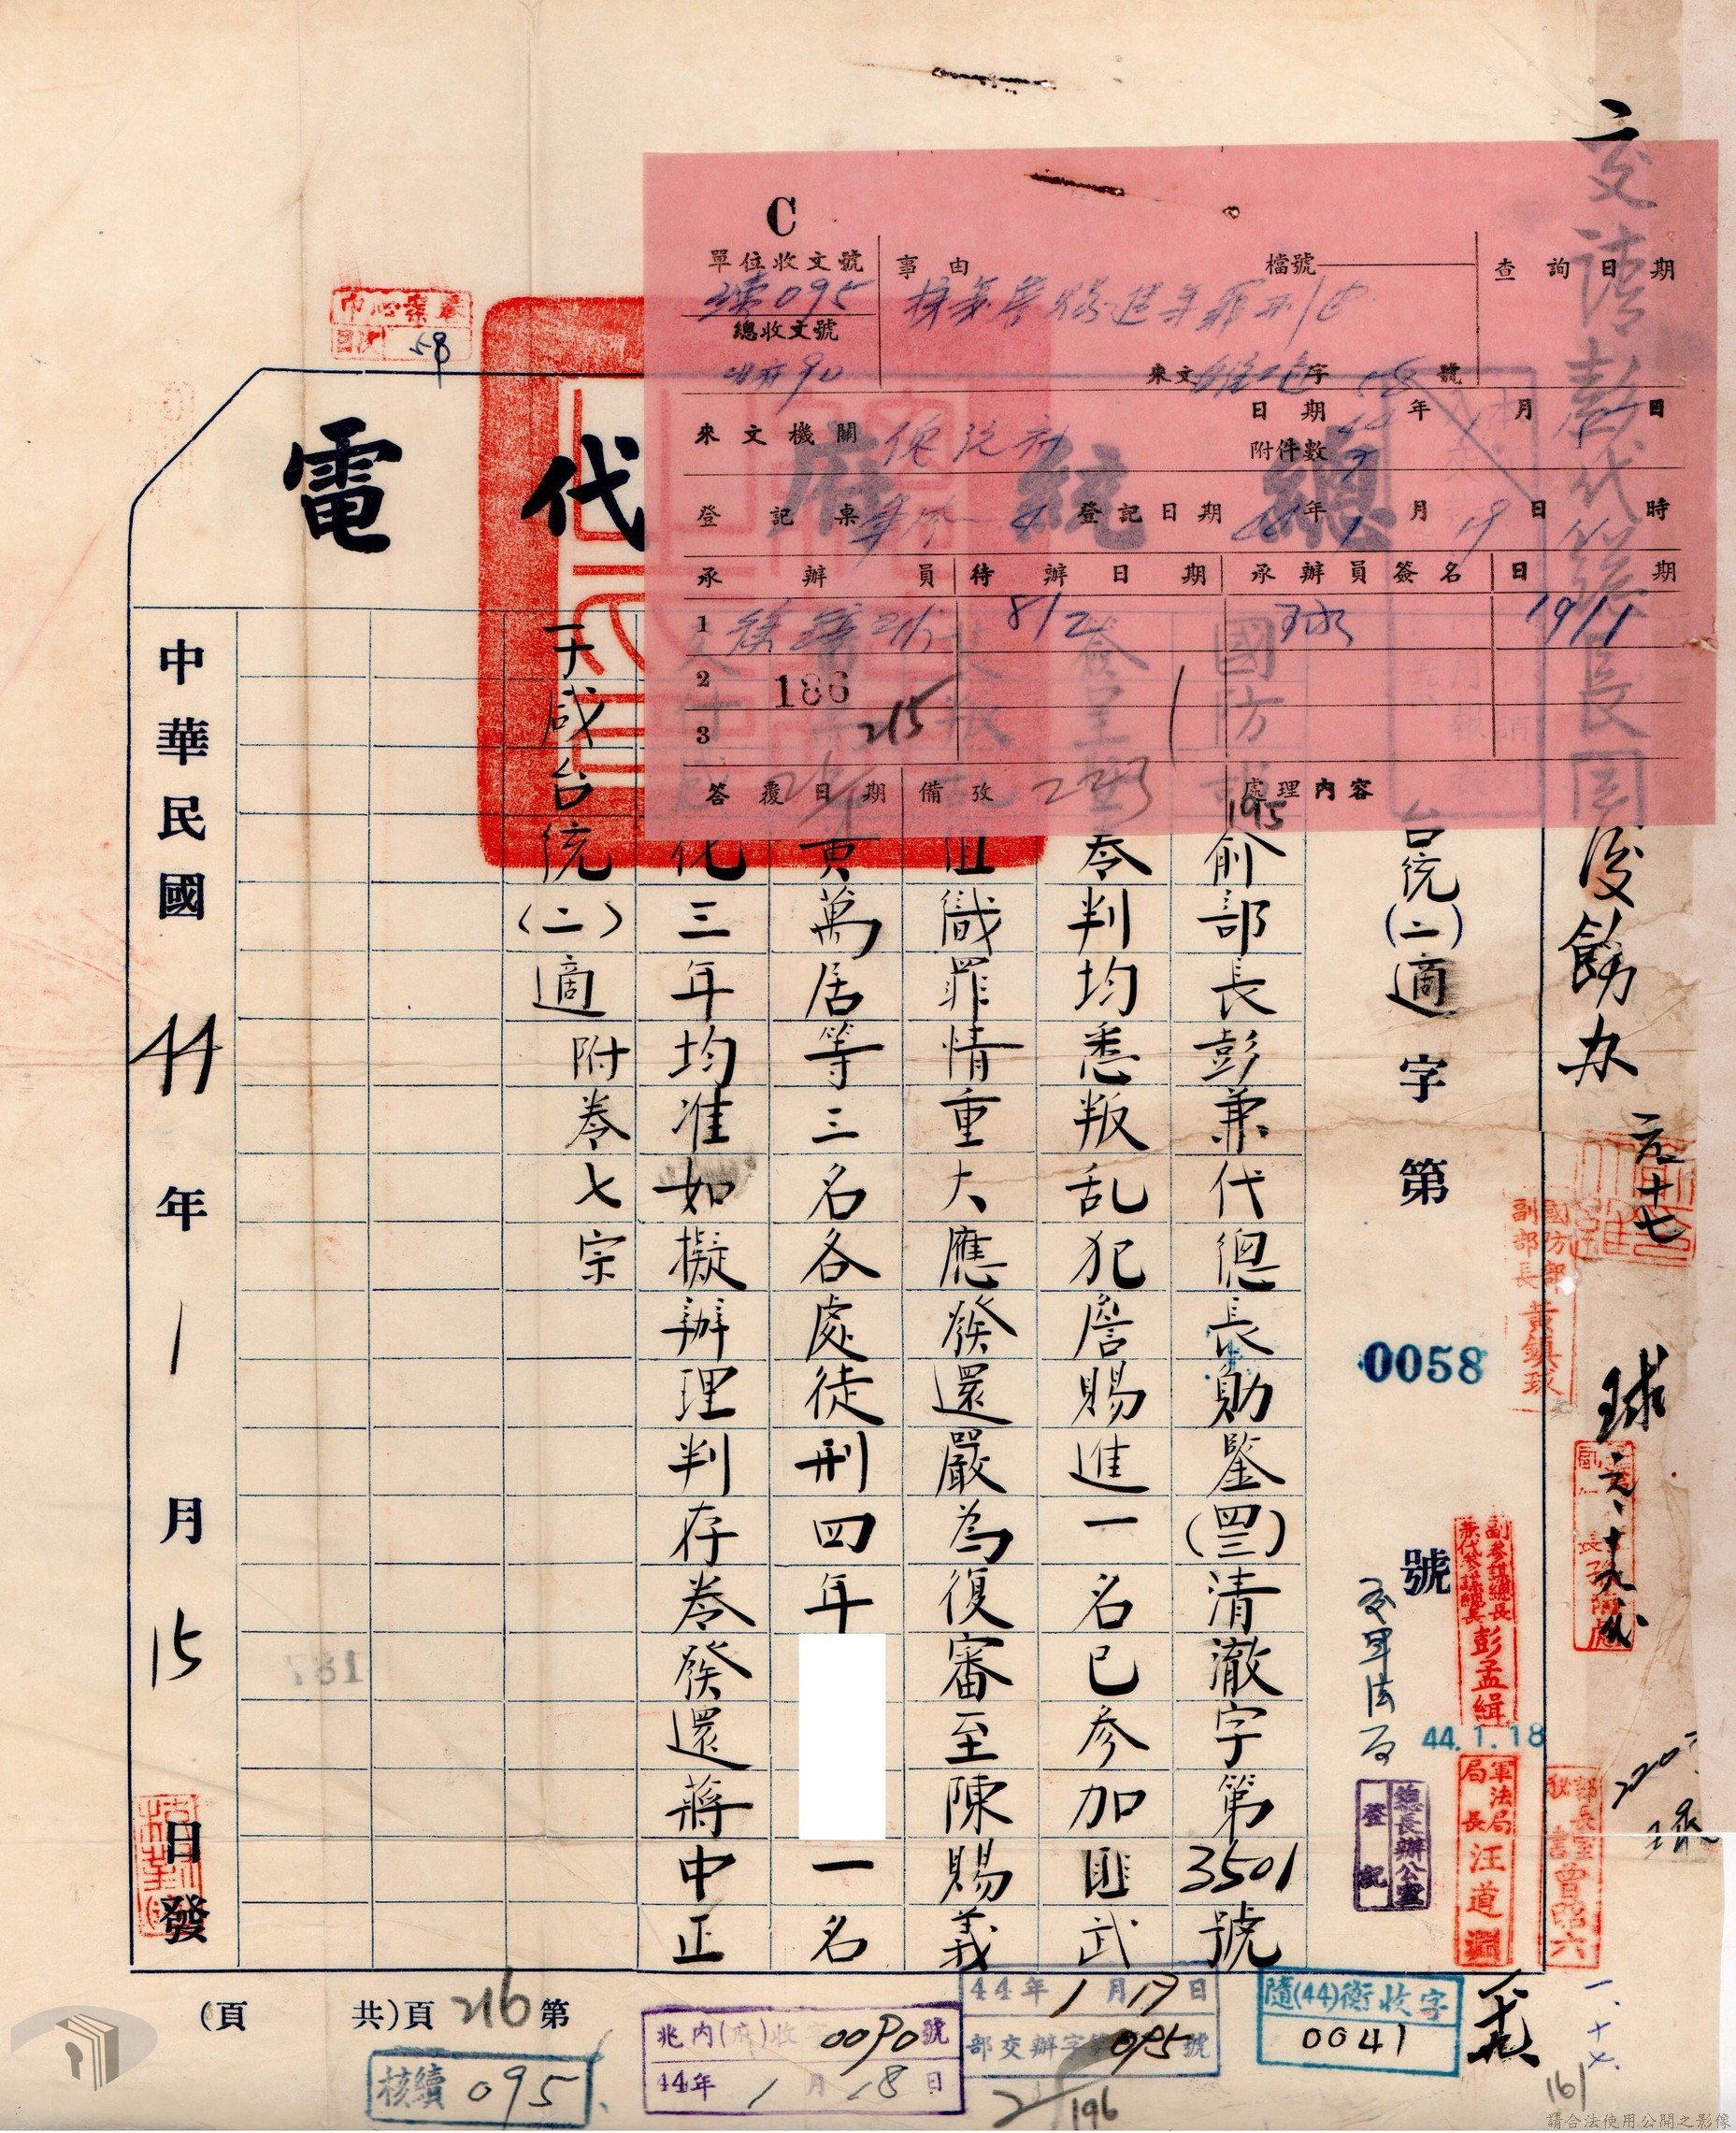 交請彭代總長
沒飭办
球
總統府代電
台統(二)適字第0058號
國防部
俞部長彭兼代總長勛鑒(四三)清澈字第3501號
簽呈暨卷判均悉叛乱犯詹賜進一名已參加匪武
裝叛亂組織罪情重大應發還嚴為復審至陳賜義
黃萬居等三名各處徒刑四年
一名
化三年均准如擬辦理判存卷發還蔣中正
子咸台統(二)適附卷七宗
中華民國44年1月15日發
C
單位收文號
095
總收文號
事由
檔號
來文 字 號
查詢日期
來文機關
日期 年 月 日
附件數
登記桌
登記日期 44年1月19日11時
承辦員
待辦日期
承辦員簽名
日期
1
8/2
19/1
2
186
3
215
答覆日期
備攷
處理內容
195
58
國防部副部長黃鎮球
副參謀總長兼代參謀總長彭孟緝
44.1.18
軍法局局長汪道淵
總長辦公室登記
部長室秘書曾昭六
781
第216頁(共 頁)
核續095
兆內(府)收字0090號
44年1月18日
44年1月17日
部交辦字第095號
隨(44)衡收字
0041
196
161
請合法使用公開之影像